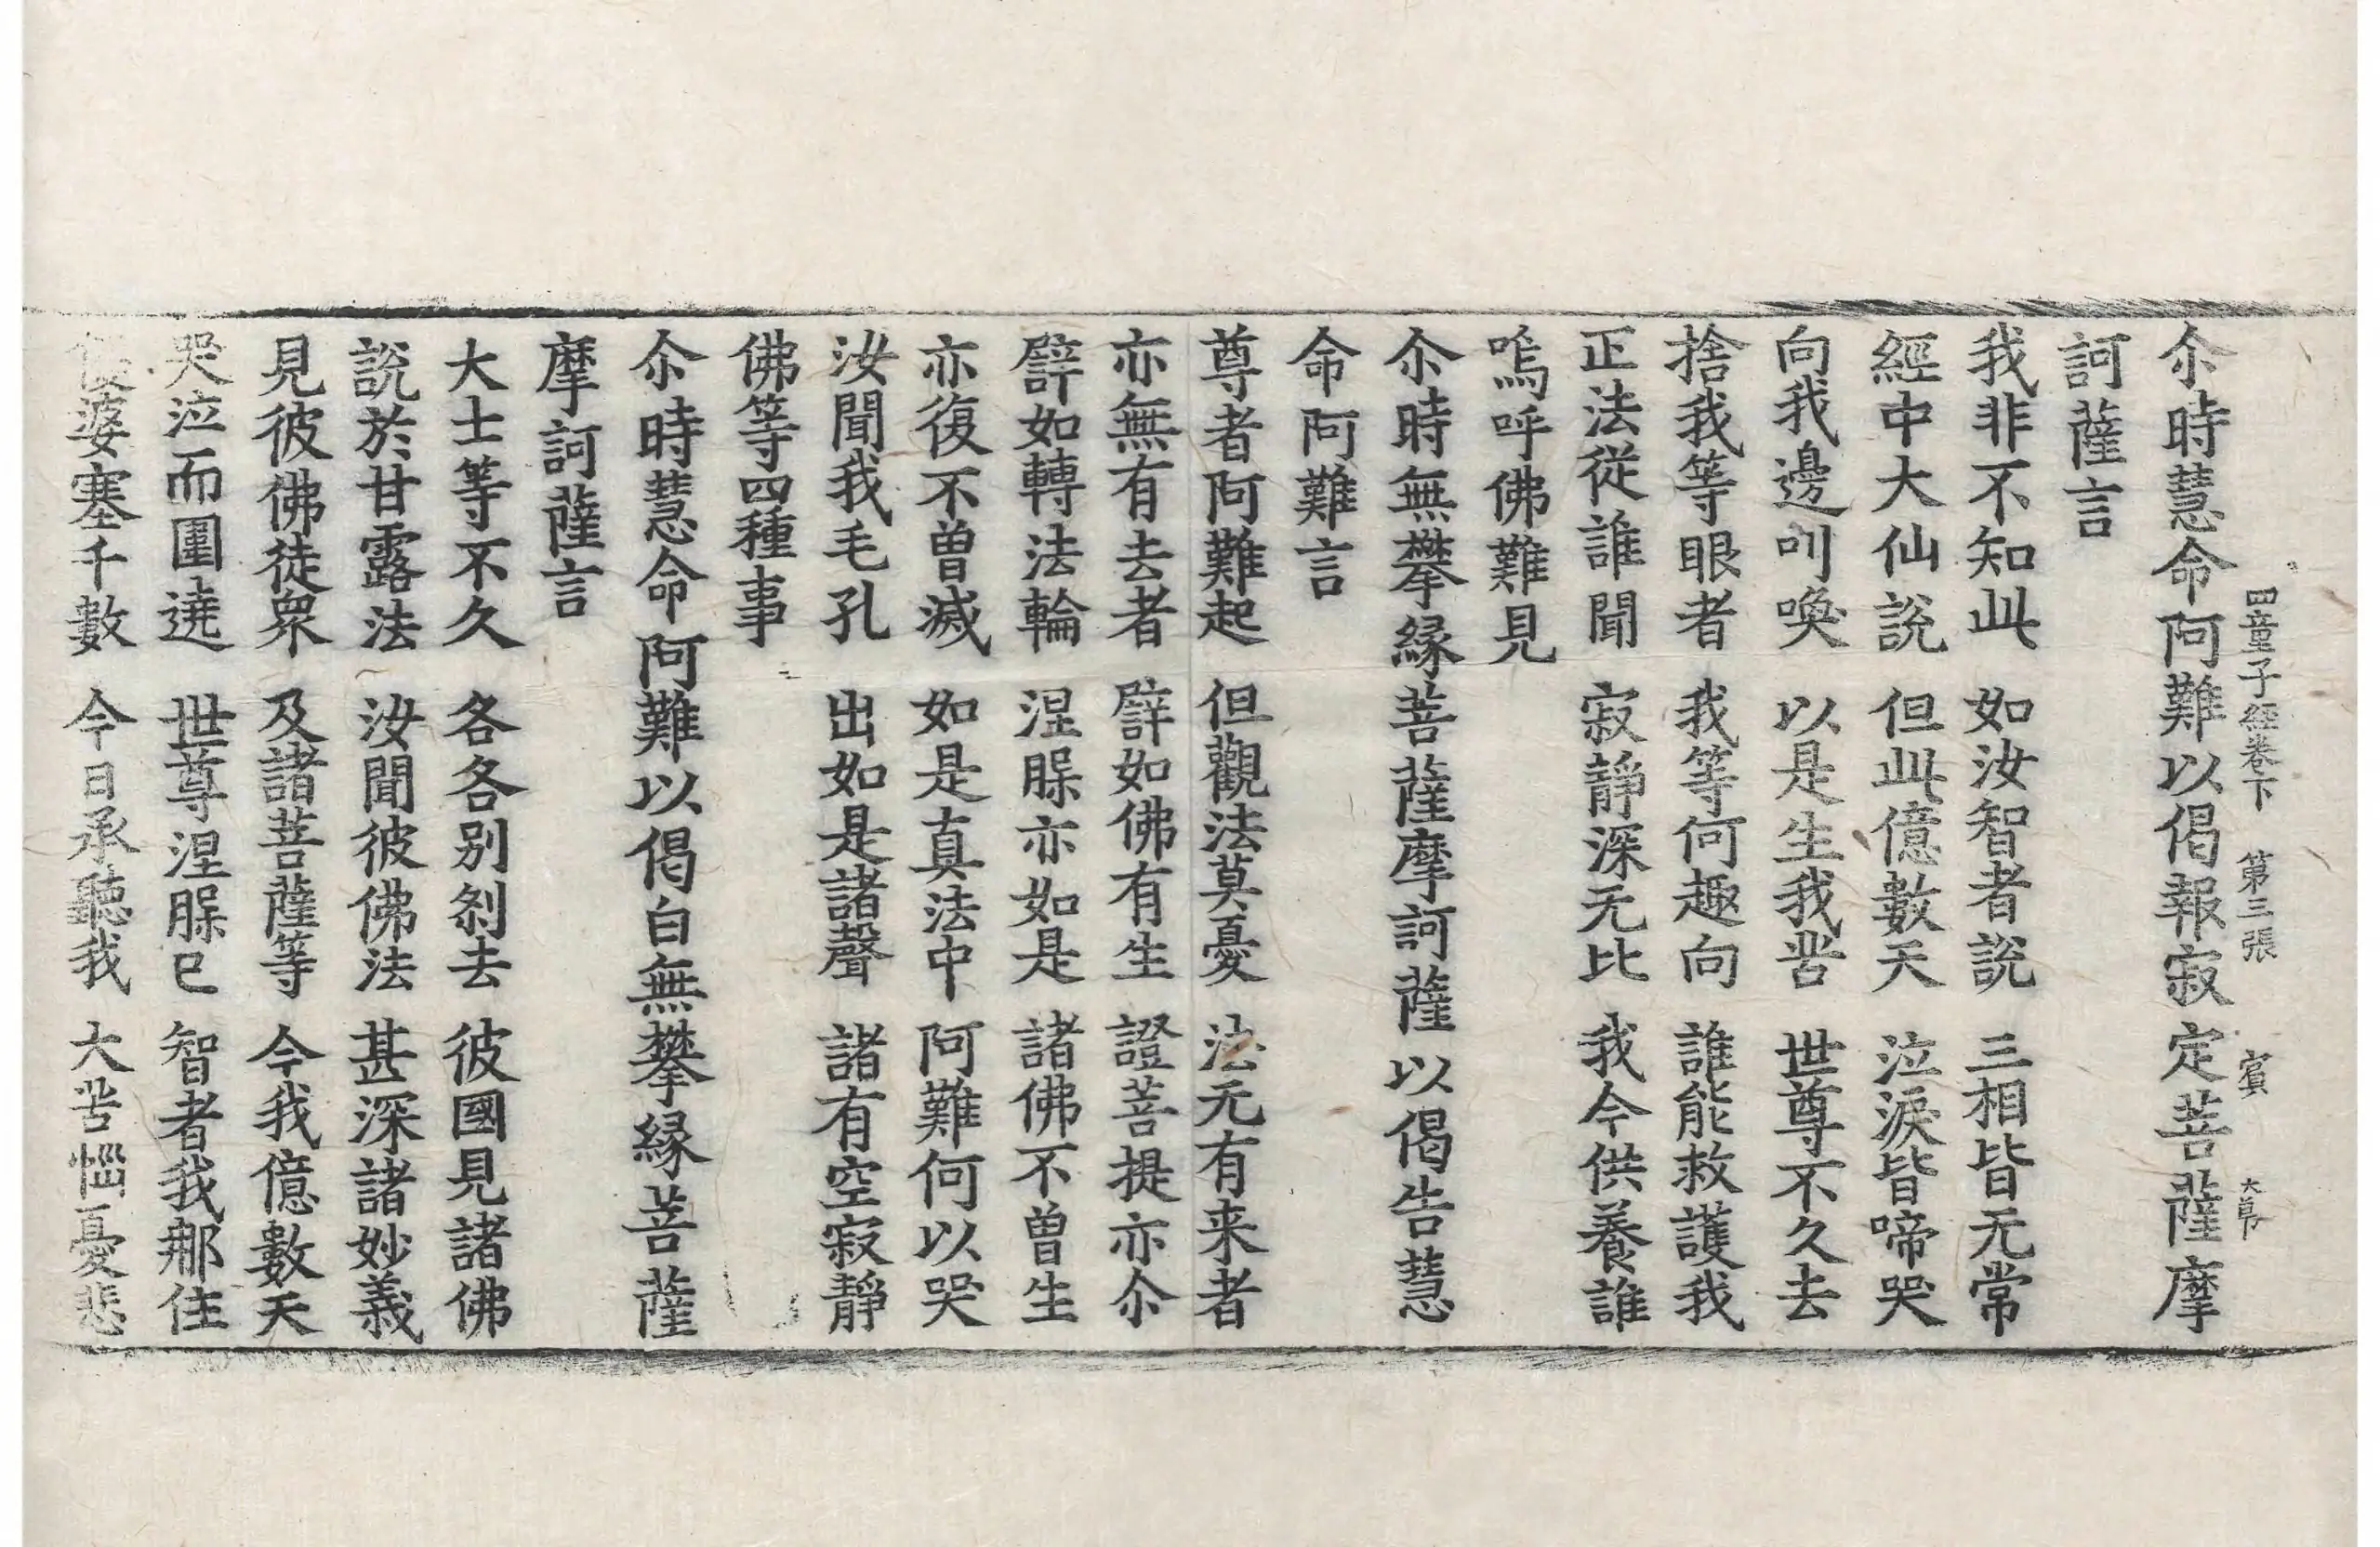 四童子經卷下 第三張 賓 大昇
尒時慧命阿難以偈報寂定菩薩摩
訶薩言
我非不知此 如汝智者說 三相皆无常
經中大仙說 但此億數天 泣淚皆啼哭
向我邊叫喚 以是生我苦 世尊不久去
捨我等眼者 我等何趣向 誰能救護我
正法從誰聞 寂靜深无比 我今供養誰
嗚呼佛難見
尒時無攀緣菩薩摩訶薩以偈告慧
命阿難言
尊者阿難起 但觀法莫憂 法无有来者
亦無有去者 譬如佛有生 證菩提亦尒
譬如轉法輪 涅槃亦如是 諸佛不曾生
亦復不曾滅 如是真法中 阿難何以哭
汝聞我毛孔 出如是諸聲 諸有空寂靜
佛等四種事
尒時慧命阿難以偈白無攀緣菩薩
摩訶薩言
大士等不久 各各别剎去 彼國見諸佛
說於甘露法 汝聞彼佛法 甚深諸妙義
見彼佛徒衆 及諸菩薩等 今我億數天
哭泣而圍遶 世尊涅槃已 智者我那住
婆塞千數 今日承聽我 大苦惱憂悲